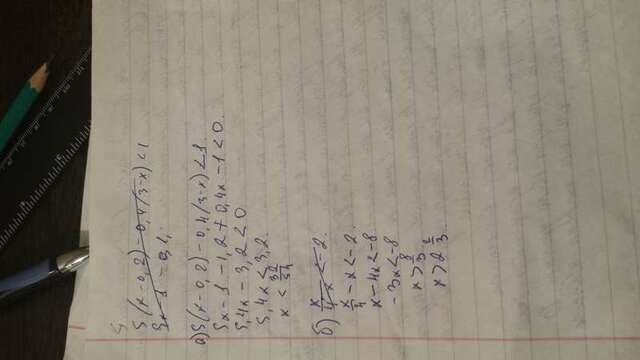 5(x-0,2)-0,4(3-x)<1
5x-1-0,2,
а) 5(x-0,2)-0,4(3-x)<1.
5x-1-1,2+0,4x-1<0.
5,4x-3,2<0
5,4x<3,2
x<32/54
б) x/4-x<-2.
x/4-x<-2.
x-4x<-8
-3x<-8
x>8/3
x>2 2/3